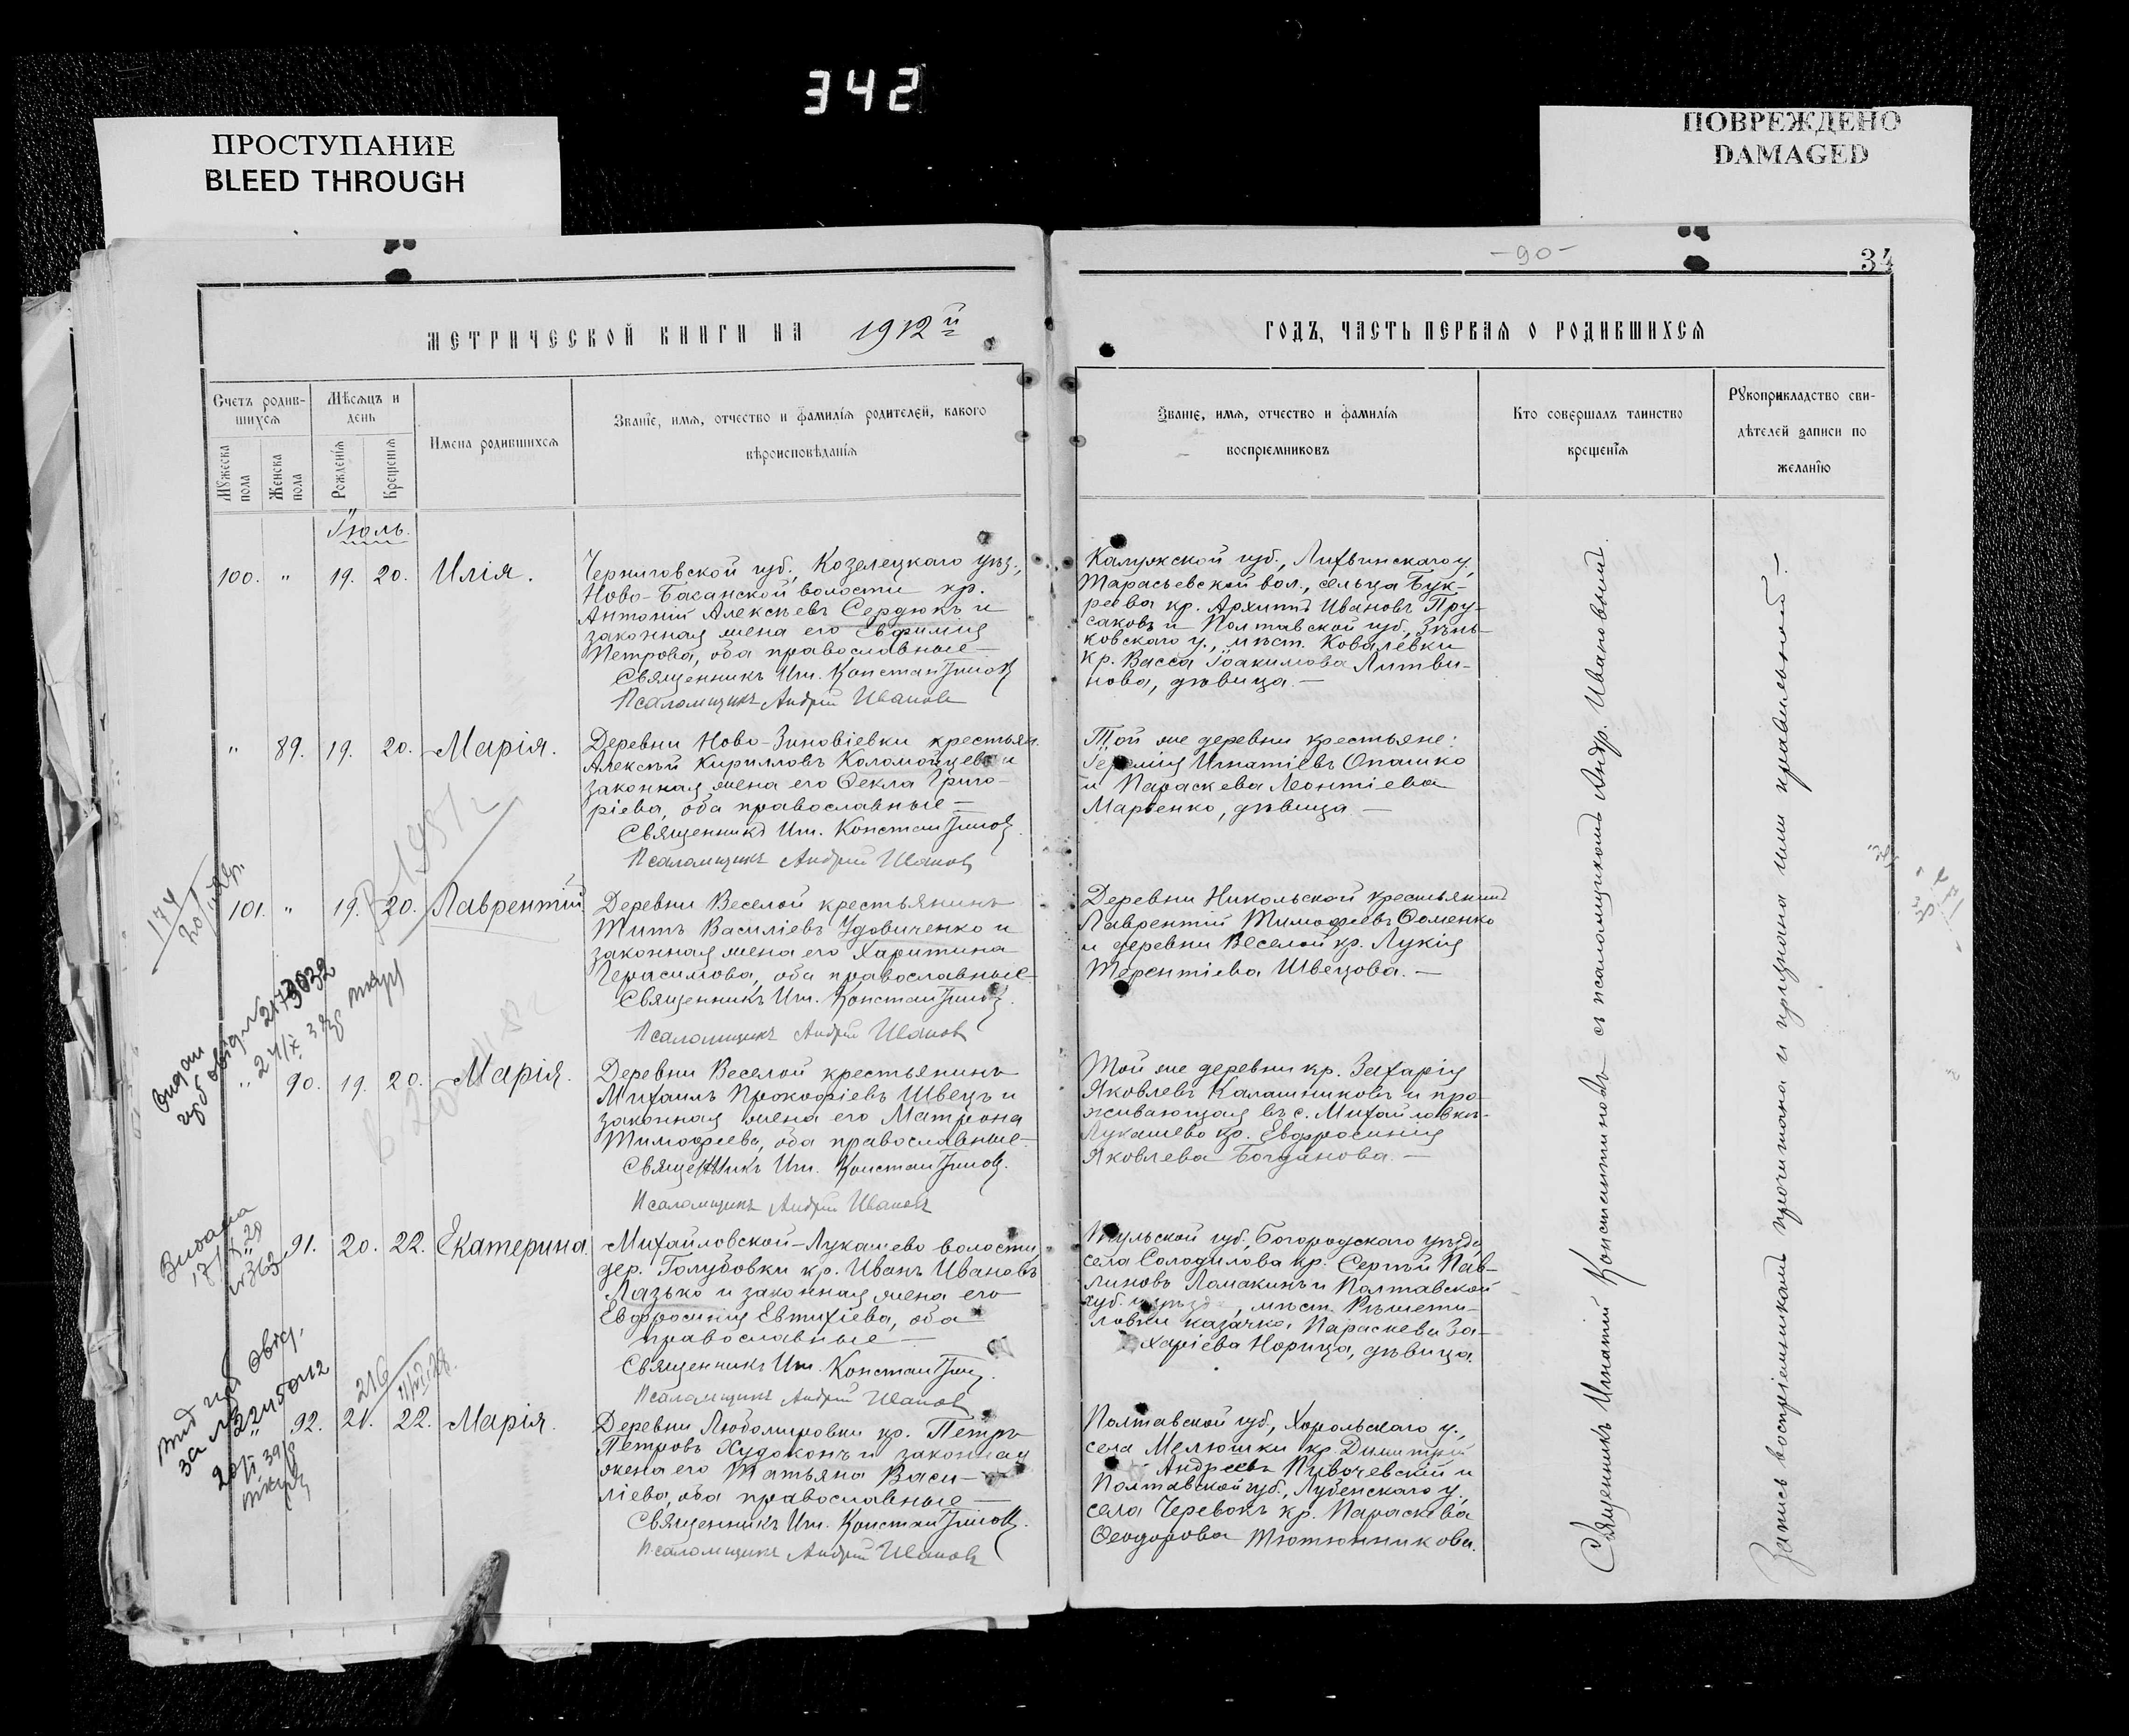 342
ПРОСТУПАНИЕ
BLEED THROUGH
ПОВРЕЖДЕНО
DAMAGED
-90-
34
МЕТРИЧЕСКОЙ КНИГИ НА 1912 й
ГОДЪ, ЧАСТЬ ПЕРВАЯ О РОДИВШИХСЯ
Счетъ родив-
шихся
Мужеска
пола
Женска
пола
Мѣсяцъ и
день
Рожденія
Крещенія
Имена родившихся
Званіе, имя, отчество и фамилія родителей, какого
вѣроисповѣданія
Званіе, имя, отчество и фамилія
воспріемниковъ
Кто совершалъ таинство
крещенія
Рукоприкладство сви-
дѣтелей записи по
желанію
Іюль.
100. " 19. 20. Илія.
Черниговской губ., Козелецкаго уѣз.,
Ново-Басанской волости кр.
Антоній Алексѣевъ Сердюкъ и
законная жена его Евфимія
Петрова, оба православные —
Священникъ Иг. Константиновъ
Псаломщикъ Андрей Ивановъ
Калужской губ., Лихвинскаго у.,
Тарасьевской вол., сельца Бук-
реева кр. Архиппъ Ивановъ Пру-
саковъ и Полтавской губ., Зѣнь-
ковскаго у., мѣст. Ковалевки
кр. Васса Іоакимова Литви-
нова, дѣвица. —
" 89. 19. 20. Марія.
Деревни Ново-Зиновіевки крестьян.
Алексѣй Кирилловъ Коломойцевъ и
законная жена его Ѳекла Григо-
ріева, оба православные —
Священникъ Иг. Константиновъ.
Псаломщикъ Андрей Ивановъ
Той же деревни крестьяне:
Іеремія Игнатіевъ Опашко
и Параскева Леонтіева
Марченко, дѣвица. —
174
101. " 19. 20. Лаврентій
Деревни Веселой крестьянинъ
Титъ Василіевъ Удовиченко и
законная жена его Харитина
Герасимова, оба православные —
Священникъ Иг. Константиновъ.
Псаломщикъ Андрей Ивановъ
Деревни Никольской крестьянинъ
Лаврентій Тимофеевъ Ѳоменко
и деревни Веселой кр. Лукія
Терентіева Швецова. —
" 90. 19. 20. Марія.
Деревни Веселой крестьянинъ
Михаилъ Прокофіевъ Швецъ и
законная жена его Матрона
Тимофеева, оба православные —
Священникъ Иг. Константиновъ.
Псаломщикъ Андрей Ивановъ
Той же деревни кр. Захарія
Яковлевъ Калашниковъ и про-
живающая въ с. Михайловкѣ-
Лукашево кр. Евфросинія
Яковлева Богданова. —
Видана
363
91. 20. 22. Екатерина.
Михайловской-Лукашево волости,
дер. Голубовки кр. Иванъ Ивановъ
Лазько и законная жена его
Евфросинія Евтихіева, оба
православные —
Священникъ Иг. Константиновъ.
Псаломщикъ Андрей Ивановъ
Тульской губ., Богородскаго уѣзда
села Солодилова кр. Сергѣй Пав-
линовъ Ломакинъ и Полтавской
губ. и уѣзда, мѣст. Рѣшети-
ловки казачка Параскева За-
харіева Норица, дѣвица.
216
92. 21. 22. Марія.
Деревни Любомировки кр. Петръ
Петровъ Худоконъ и законная
жена его Татьяна Васи-
ліева, оба православные —
Священникъ Иг. Константиновъ.
Псаломщикъ Андрей Ивановъ
Полтавской губ., Хорольскаго у.,
села Мелюшки кр. Димитрій
Андреевъ Пивочевскій и
Полтавской губ., Лубенскаго у.
села Черевокъ кр. Параскева
Ѳеодорова Тютюнникова.
Священникъ Игнатій Константиновъ съ псаломщикомъ Андр. Ивановымъ.
Запись воспріемниками прочитана и признана ими правильной. —